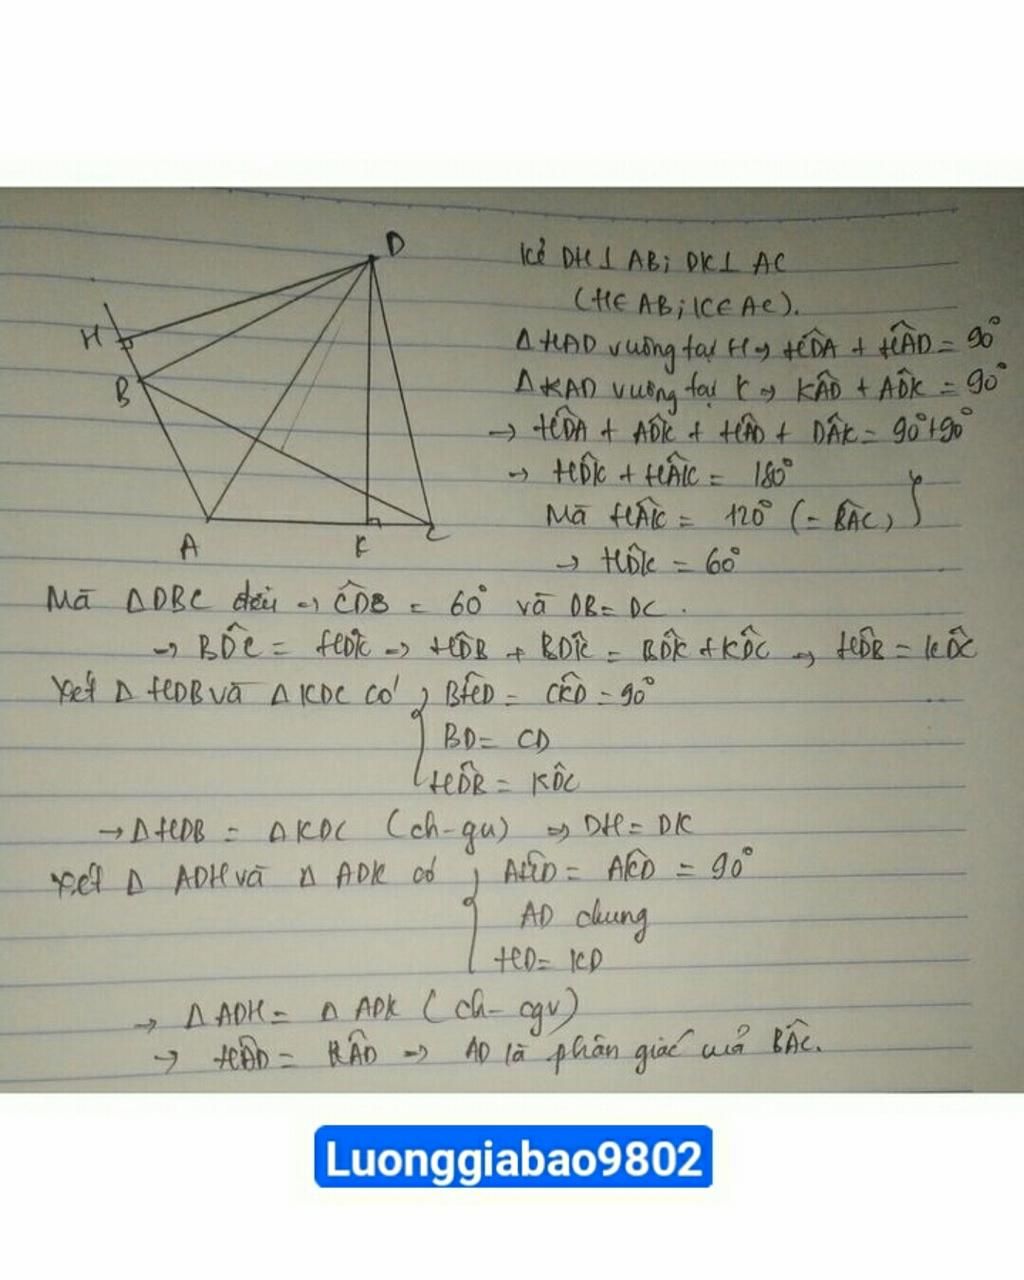 D
H
B
A
K
C
Kẻ DH⊥AB; DK⊥AC
(H∈AB; K∈AC).
Δ HAD vuông tại H => HD̂A + HÂD = 90°
Δ KAD vuông tại K => KÂD + AD̂K = 90°
→ HD̂A + AD̂K + HÂD + DÂK = 90°+90°
→ HD̂K + HÂK = 180°
Mà HÂK = 120° (= BÂC)
→ HD̂K = 60°
Mà ΔDBC đều => CD̂B = 60° và DB = DC.
→ BD̂C = HD̂K → HD̂B + BD̂K = BD̂K + KD̂C => HD̂B = KD̂C
Xét Δ HDB và Δ KDC có { BĤD = CK̂D = 90°
BD = CD
HD̂B = KD̂C
→ ΔHDB = ΔKDC (ch-gn) => DH = DK
Xét Δ ADH và Δ ADK có { AĤD = AK̂D = 90°
AD chung
HD = KD
→ Δ ADH = Δ ADK (ch-cgv)
→ HÂD = KÂD => AD là phân giác của BÂC.
Luonggiabao9802